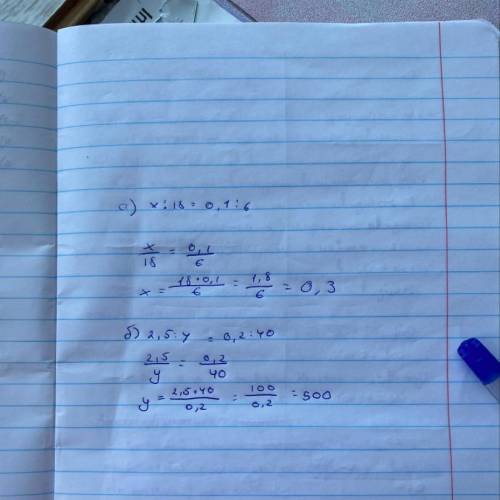 а) x:18 = 0,1:6
x/18 = 0,1/6
x = 18*0,1/6 = 1,8/6 = 0,3
б) 2,5:y = 0,2:40
2,5/y = 0,2/40
y = 2,5*40/0,2 = 100/0,2 = 500